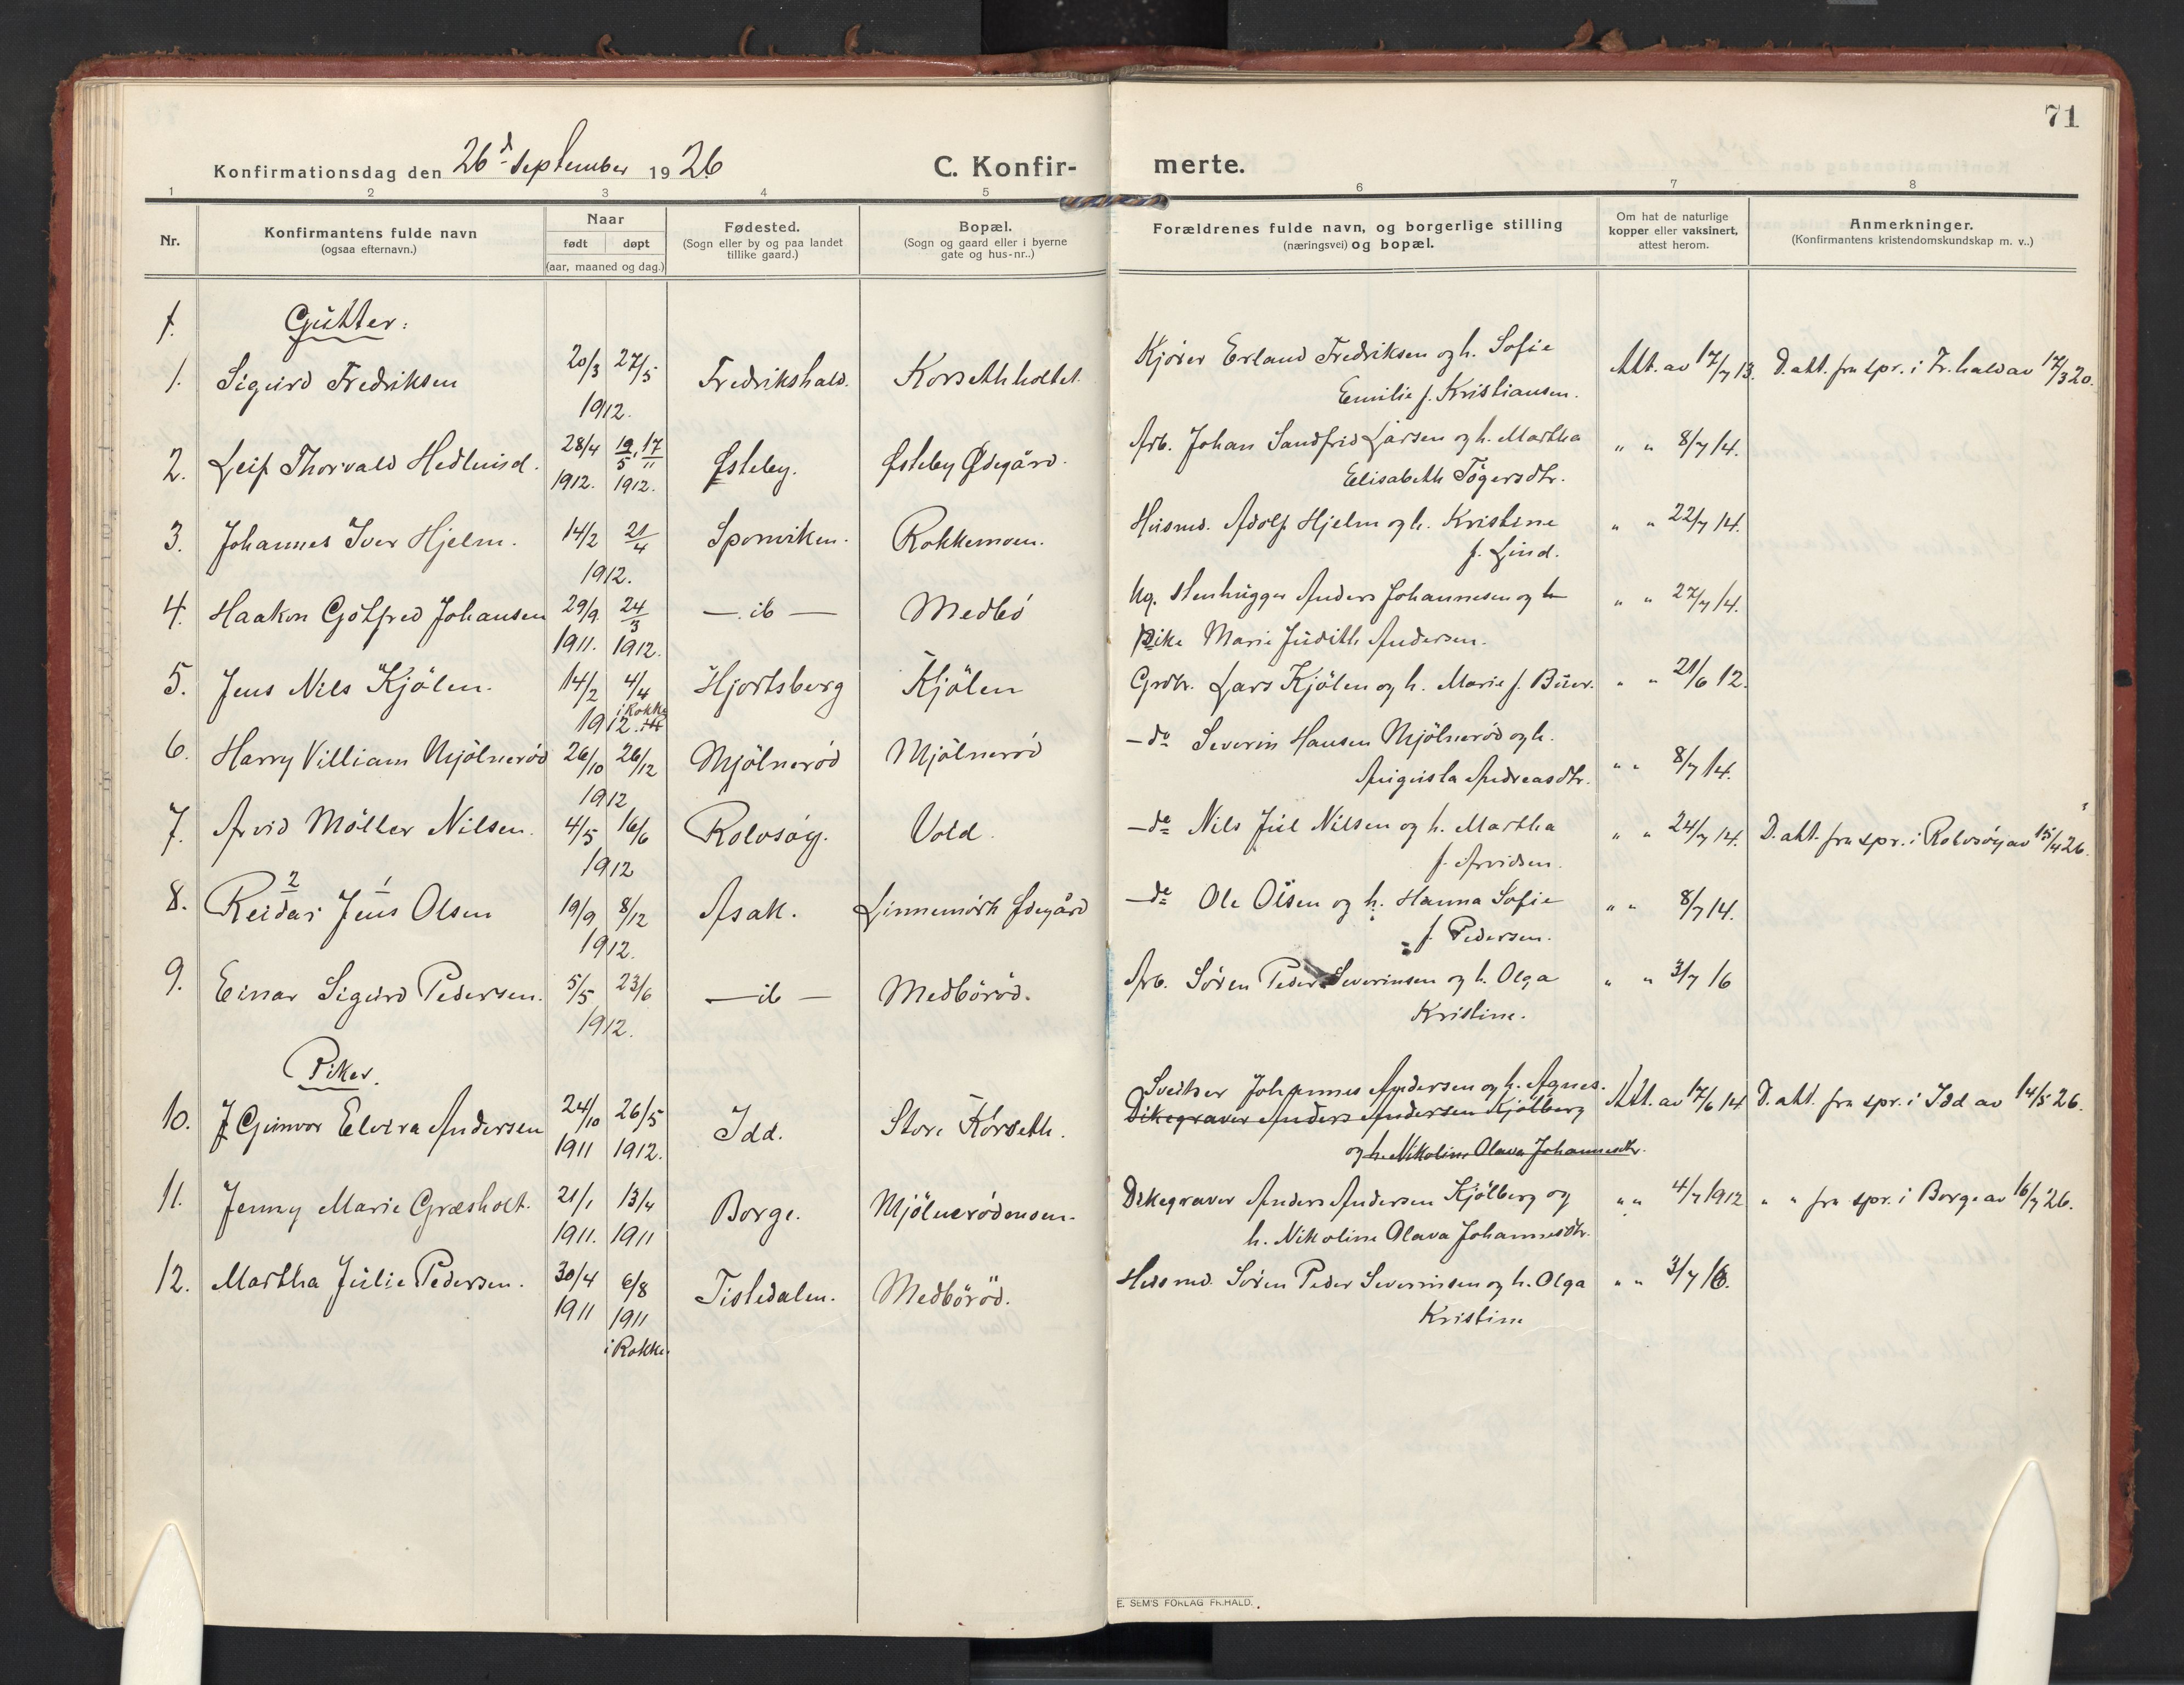 71
Konfirmationsdag den 26d September 1926
C. Konfirmerte.
1 2 3 4 5 6 7 8
Nr.
Konfirmantens fulde navn
(ogsaa efternavn.)
Naar
født døpt
(aar, maaned og dag.)
Fødested.
(Sogn eller by og paa landet
tillike gaard.)
Bopæl.
(Sogn og gaard eller i byerne
gate og hus-nr..)
Forældrenes fulde navn, og borgerlige stilling
(næringsvei) og bopæl.
Om hat de naturlige
kopper eller vaksinert,
attest herom.
Anmerkninger.
(Konfirmantens kristendomskundskap m. v..)
1. Gutter:
1. Sigurd Fredriksen 20/3 27/5 Fredrikshald. Korsethholtet Kjører Erland Fredriksen og h. Sofie Att. av 17/7 13. D. att. fra spr. i Fr.hald av 17/3 20.
1912. Emilie f. Kristiansen.
2. Leif Thorvald Hedlund. 28/4 19/5, 17/11 Østeby. Østeby Ødegård. Arb. Johan Sandfrid Larsen og h. Martha " " 8/7 14.
1912. 1912. Elisabeth Tögersdtr.
3. Johannes Iver Hjelm. 14/2 21/4 Sponviken. Rokkemoen. Husmd. Adolf Hjelm og h. Kristine " " 22/7 14.
1912. f. Lind.
4. Haakon Gotfred Johansen 29/9 24/3 — ib — Medbö Ug. Stenhugger Anders Johannesen og
1911. 1912. pike Marie Judith Andersen. " " 27/7 14.
5. Jens Nils Kjölen. 14/2 4/4 Hjortsberg Kjölen Grdbr. Lars Kjölen og h. Marie f. Buer. " " 21/6 12.
1912. i Rokke
6. Harry Villiam Mjölneröd 26/10 26/12 Mjölneröd Mjölneröd — do Severin Hansen Mjölneröd og h.
1912 Augusta Andreasdtr. " " 8/7 14.
7. Arvid Möller Nilsen. 4/5 16/6 Rolvsöy. Vold. — do Nils Juel Nilsen og h. Martha " " 24/7 14. D. att. fra spr. i Rolvsöy av 15/4 26.
1912 f. Arvidsen.
2 1
8. Reidar Jens Olsen 19/9 8/12 Asak. Linnemörk Ødegård — do Ole Olsen og h. Hanna Sofie " " 8/7 14.
1912. f. Pedersen.
9. Einar Sigurd Pedersen. 5/5 23/6 — ib — Medböröd. Arb. Sören Peder Severinsen og h. Olga " " 3/7 16
1912. Kristine.
Piker.
Sveitser Johannes Andersen og h. Agnes.
10. J Gunvor Elvira Andersen 24/10 26/5 Idd. Store Korseth. Dikegraver Anders Andersen Kjölberg Att. av 17/6 14 D. att. fra spr. i Idd av 14/5 26.
1911 1912. og h. Nikoline Olava Johannesdtr.
11. Jenny Marie Græsholt. 21/1 13/4 Borge. Mjölnerödmoen. Dikegraver Anders Andersen Kjölberg og " " 4/7 1912 " " fra spr. i Borge av 16/7 26.
1911. 1911 h. Nikoline Olava Johannesdtr.
12. Martha Julie Pedersen. 30/4 6/8 Tistedalen. Medböröd. Husmd. Sören Peder Severinsen og h. Olga " " 3/7 16.
1911 1911 Kristine
i Rokke.
E. SEM'S FORLAG FR.HALD.